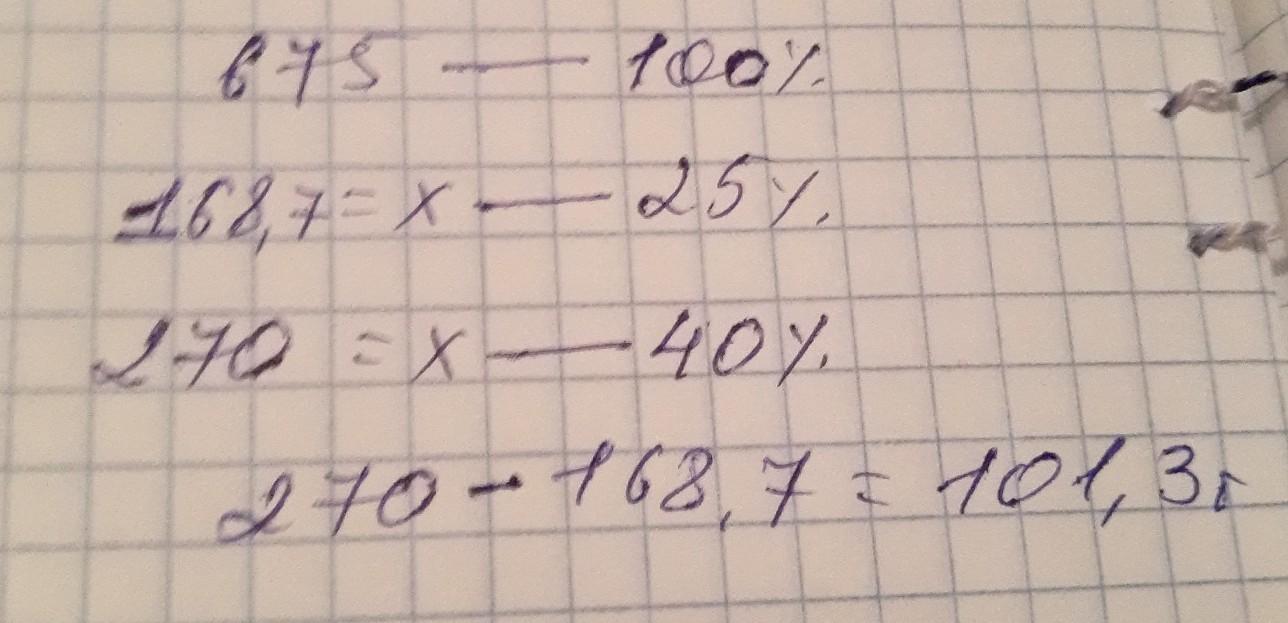 675 — 100%
168,7 = x — 25%
270 = x — 40%
270 - 168,7 = 101,3г